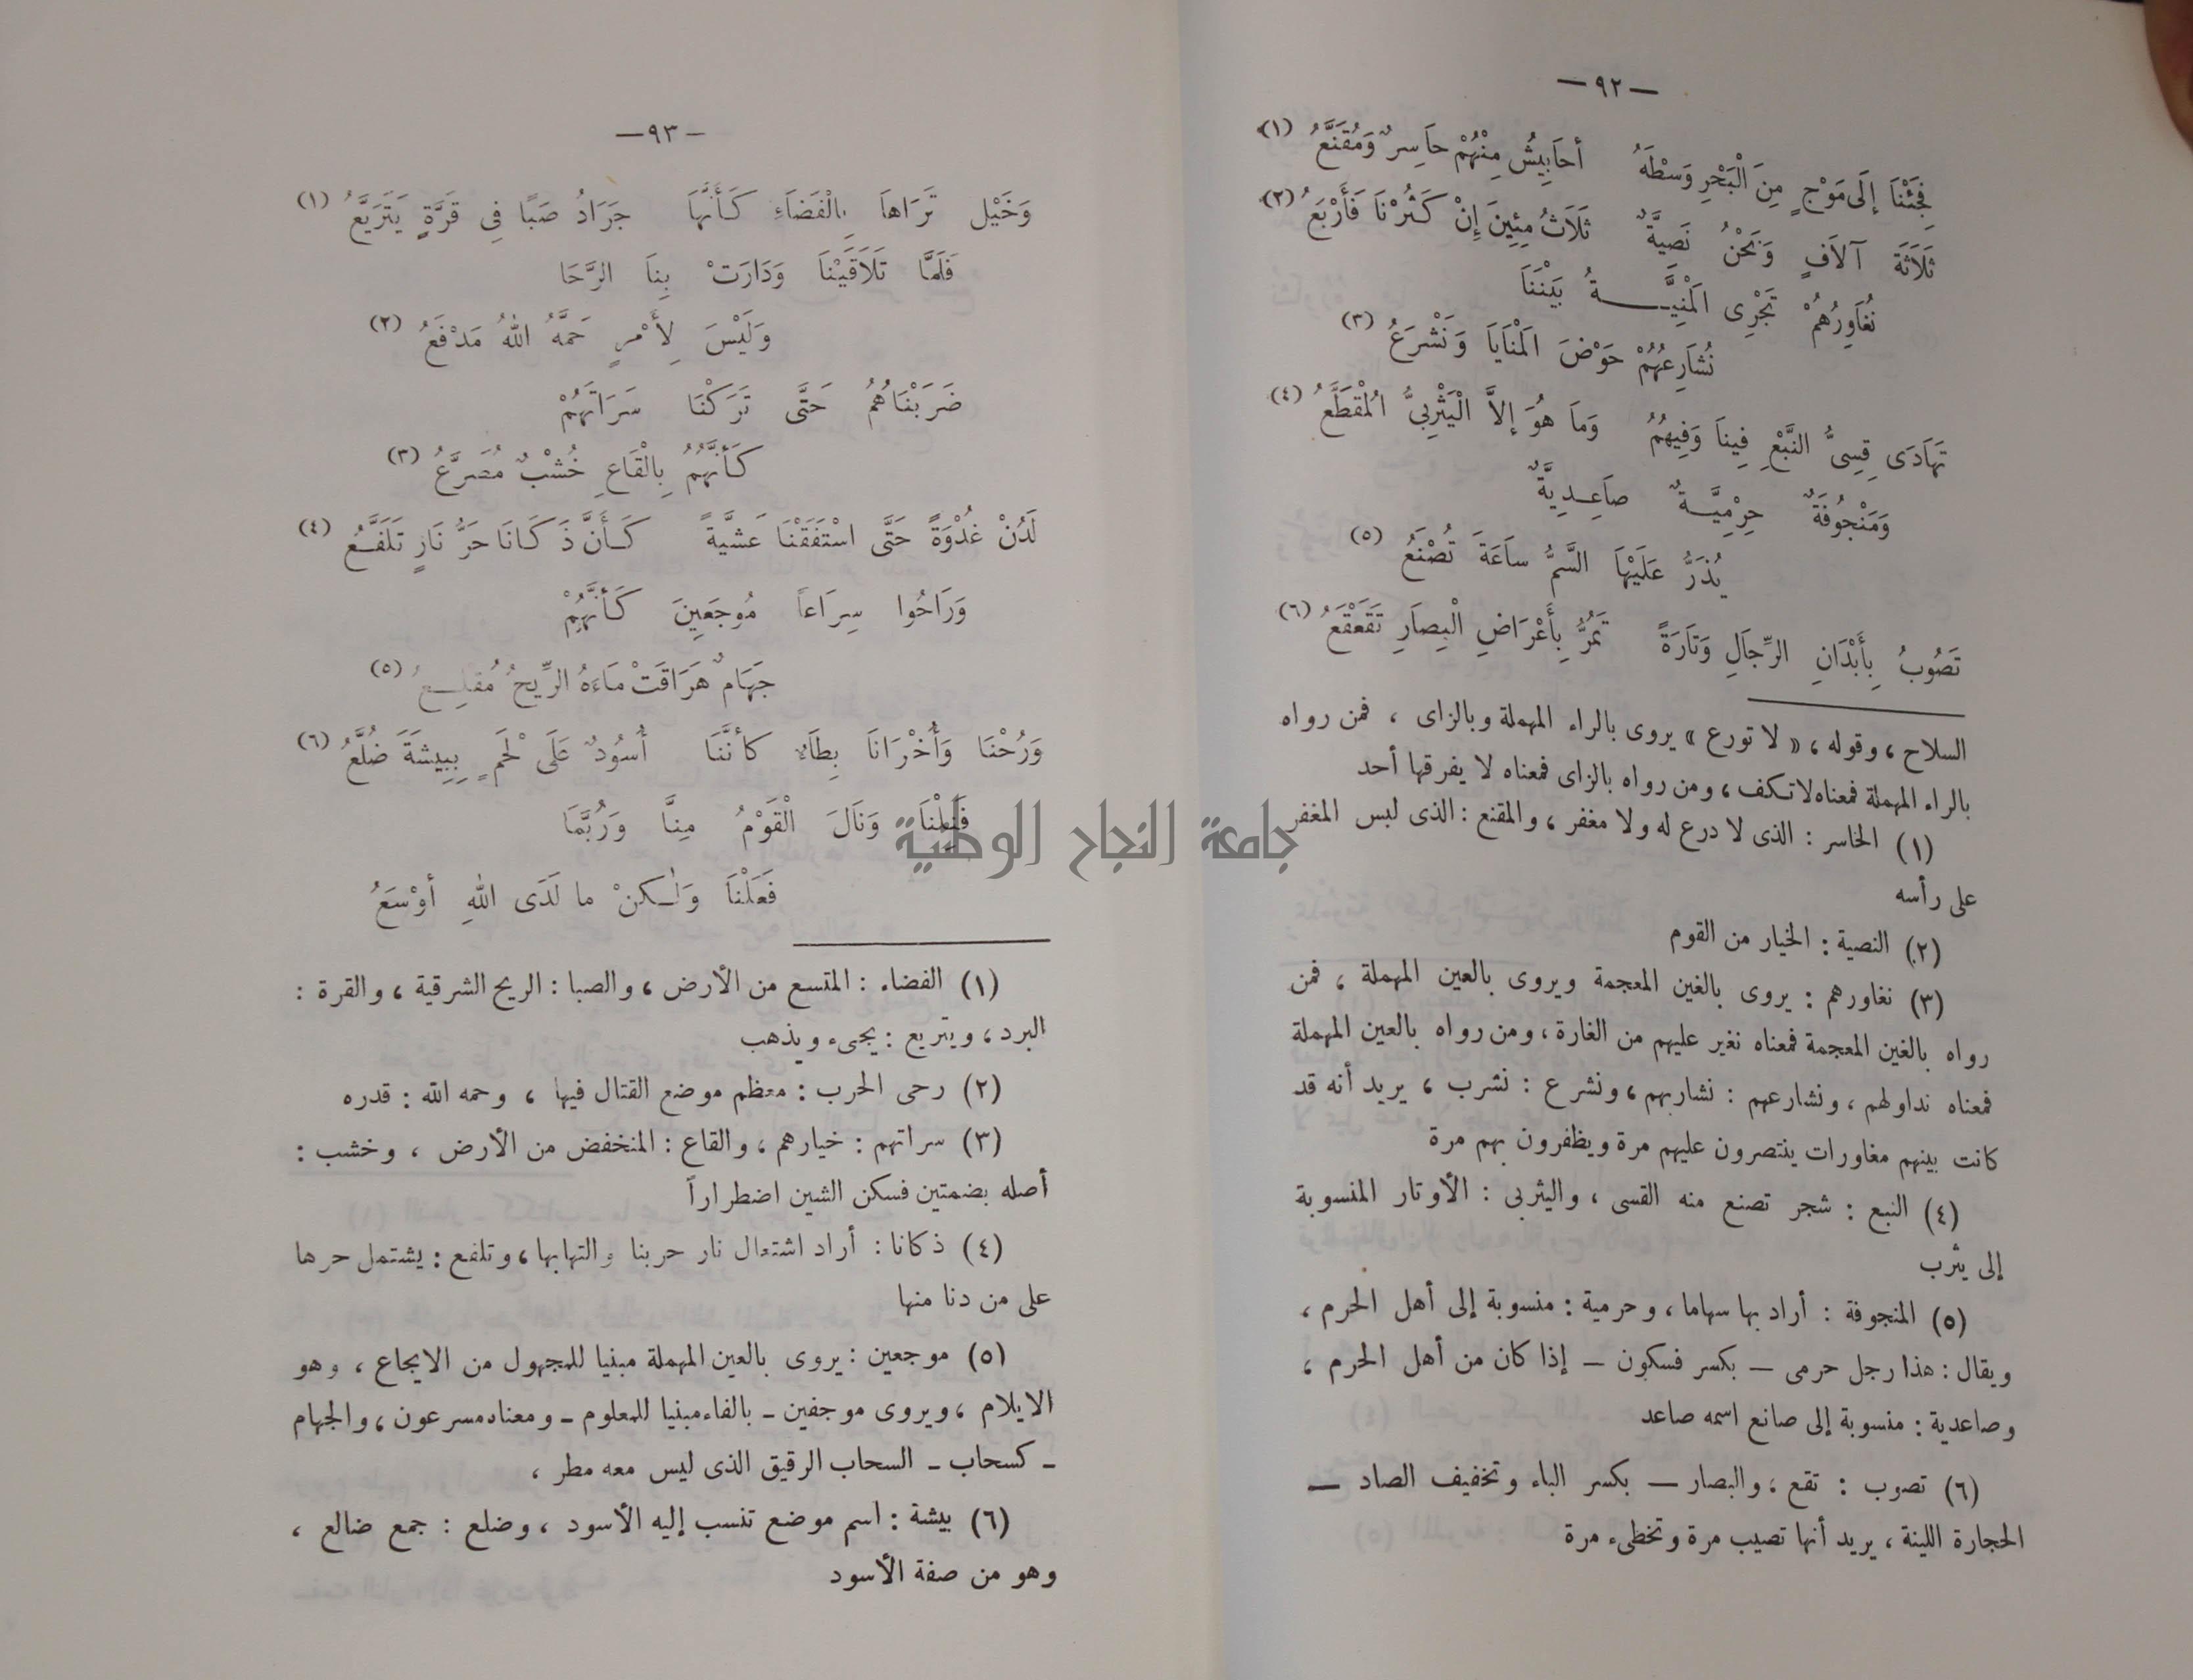 —٩٢—
فَجِئْنَا إِلَى مَوْجٍ مِنَ الْبَحْرِ وَسْطَهُ أَحَابِيشُ مِنْهُمْ حَاسِرٌ وَمُقَنَّعُ (١)
ثَلَاثَةَ آلَافٍ وَنَحْنُ نَصِيَّةٌ ثَلَاثُ مِئِينَ إِنْ كَثُرْنَا فَأَرْبَعُ (٢)
نُغَاوِرُهُمْ تَجْرِى الْمَنِيَّـــةُ بَيْنَنَا
نُشَارِعُهُمْ حَوْضَ الْمَنَايَا وَنَشْرَعُ (٣)
تَهَادَى قِسِىُّ النَّبْعِ فِينَا وَفِيهُمُ وَمَا هُوَ إِلَّا الْيَثْرِبِىُّ الْمُقَطَّعُ (٤)
وَمَنْجُوفَةٌ حِرْمِيَّـةٌ صَاعِـدِيَّةٌ
يُذَرُّ عَلَيْهَا السَّمُّ سَاعَةَ تُصْنَعُ (٥)
تَصُوبُ بِأَبْدَانِ الرِّجَالِ وَتَارَةً تَمُرُّ بِأَعْرَاضِ الْبِصَارِ تَقَعْقَعُ (٦)
السلاح ، وقوله ، « لا تورع » يروى بالراء المهملة وبالزاى ، فمن رواه
بالراء المهملة فمعناه لا تكف ، ومن رواه بالزاى فمعناه لا يفرقها أحد
(١) الحاسر : الذى لا درع له ولا مغفر ، والمقنع : الذى لبس المغفر
على رأسه
(٢) النصية : الخيار من القوم
(٣) نغاورهم : يروى بالغين المعجمة ويروى بالعين المهملة ، فمن
رواه بالغين المعجمة فمعناه نغير عليهم من الغارة ، ومن رواه بالعين المهملة
فمعناه نداولهم ، ونشارعهم : نشاربهم ، ونشرع : نشرب ، يريد أنه قد
كانت بينهم مغاورات ينتصرون عليهم مرة ويظفرون بهم مرة
(٤) النبع : شجر تصنع منه القسى ، واليثربى : الأوتار المنسوبة
إلى يثرب
(٥) المنجوفة : أراد بها سهاما ، وحرمية : منسوبة إلى أهل الحرم ،
ويقال : هذا رجل حرمى — بكسر فسكون — إذا كان من أهل الحرم ،
وصاعدية : منسوبة إلى صانع اسمه صاعد
(٦) تصوب : تقع ، والبصار — بكسر الباء وتخفيف الصاد —
الحجارة اللينة ، يريد أنها تصيب مرة وتخطىء مرة
—٩٣—
وَخَيْلٍ تَرَاهَا بِالْفَضَاءِ كَأَنَّهَا جَرَادُ صَبًا فِى قَرَّةٍ يَتَرَيَّعُ (١)
فَلَمَّا تَلَاقَيْنَا وَدَارَتْ بِنَا الرَّحَا
وَلَيْسَ لِأَمْرٍ حَمَّهُ اللهُ مَدْفَعُ (٢)
ضَرَبْنَاهُمُ حَتَّى تَرَكْنَا سَرَاتَهُمْ
كَأَنَّهُمُ بِالْقَاعِ خُشْبٌ مُصَرَّعُ (٣)
لَدُنْ غُدْوَةً حَتَّى اسْتَفَقْنَا عَشِيَّةً كَـأَنَّ ذَكَانَا حَرُّ نَارٍ تَلَفَّـعُ (٤)
وَرَاحُوا سِرَاعاً مُوجَعِينَ كَأَنَّهُمْ
جَهَامٌ هَرَاقَتْ مَاءَهُ الرِّيحُ مُقْلِـعُ (٥)
وَرُحْنَا وَأُخْرَانَا بِطَاءٌ كَأَنَّنَا أُسُودٌ عَلَى لَحْمٍ بِبِيشَةَ ضُلَّعُ (٦)
فَنِلْنَا وَنَالَ الْقَوْمُ مِنَّا وَرُبَّمَا
جامعة النجاح الوطنية
فَعَلْنَا وَلٰـكِنْ مَا لَدَى اللهِ أَوْسَعُ
(١) الفضاء : المتسع من الأرض ، والصبا : الريح الشرقية ، والقرة :
البرد ، ويتريع : يجىء ويذهب
(٢) رحى الحرب : معظم موضع القتال فيها ، وحمه الله : قدره
(٣) سراتهم : خيارهم ، والقاع : المنخفض من الأرض ، وخشب :
أصله بضمتين فسكن الشين اضطراراً
(٤) ذكانا : أراد اشتعال نار حربنا والتهابها ، وتلفع : يشتمل حرها
على من دنا منها
(٥) موجعين : يروى بالعين المهملة مبنيا للمجهول من الايجاع ، وهو
الايلام ، ويروى موجفين ـ بالفاء مبنيا للمعلوم ـ ومعناه مسرعون ، والجهام
ـ كسحاب ـ السحاب الرقيق الذى ليس معه مطر ،
(٦) بيشة : اسم موضع تنسب إليه الأسود ، وضلع : جمع ضالع ،
وهو من صفة الأسود